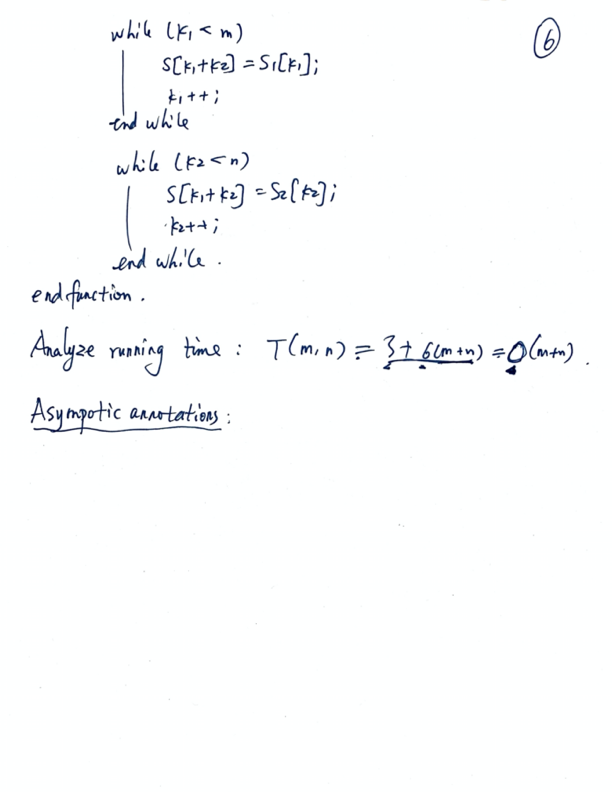 6
while (k1 < m)
S[k1+k2] = S1[k1];
k1++;
end while
while (k2 < n)
S[k1+k2] = S2[k2];
k2++;
end while.
end function.
Analyze running time: T(m,n) = 3+6(m+n) = O(m+n).
Asympotic annotations: